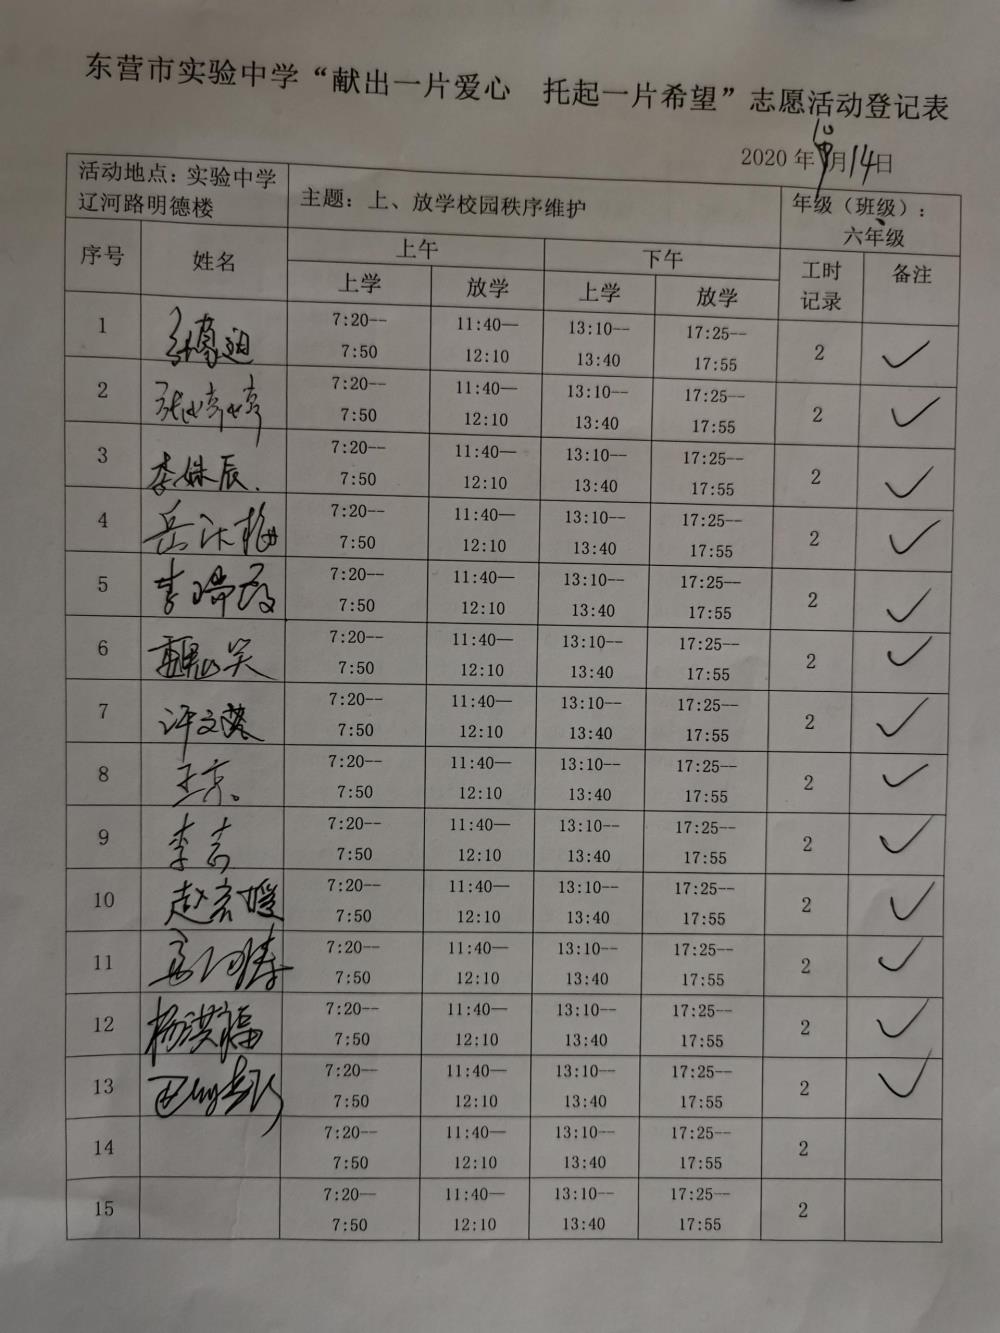 东营市实验中学“献出一片爱心 托起一片希望”志愿活动登记表
2020 年 10 月 14 日
活动地点：实验中学
辽河路明德楼
主题：上、放学校园秩序维护
年级（班级）：
六年级
序号 姓名 上午 下午 工时记录 备注
上学 放学 上学 放学
1 7:20--7:50 11:40—12:10 13:10--13:40 17:25--17:55 2 ✓
2 张婷婷 7:20--7:50 11:40—12:10 13:10--13:40 17:25--17:55 2 ✓
3 李姝辰 7:20--7:50 11:40—12:10 13:10--13:40 17:25--17:55 2 ✓
4 7:20--7:50 11:40—12:10 13:10--13:40 17:25--17:55 2 ✓
5 李瑞霞 7:20--7:50 11:40—12:10 13:10--13:40 17:25--17:55 2 ✓
6 7:20--7:50 11:40—12:10 13:10--13:40 17:25--17:55 2 ✓
7 许文蓉 7:20--7:50 11:40—12:10 13:10--13:40 17:25--17:55 2 ✓
8 王京 7:20--7:50 11:40—12:10 13:10--13:40 17:25--17:55 2 ✓
9 李吉 7:20--7:50 11:40—12:10 13:10--13:40 17:25--17:55 2 ✓
10 赵宏媛 7:20--7:50 11:40—12:10 13:10--13:40 17:25--17:55 2 ✓
11 7:20--7:50 11:40—12:10 13:10--13:40 17:25--17:55 2 ✓
12 杨洪福 7:20--7:50 11:40—12:10 13:10--13:40 17:25--17:55 2 ✓
13 7:20--7:50 11:40—12:10 13:10--13:40 17:25--17:55 2 ✓
14 7:20--7:50 11:40—12:10 13:10--13:40 17:25--17:55 2
15 7:20--7:50 11:40—12:10 13:10--13:40 17:25--17:55 2